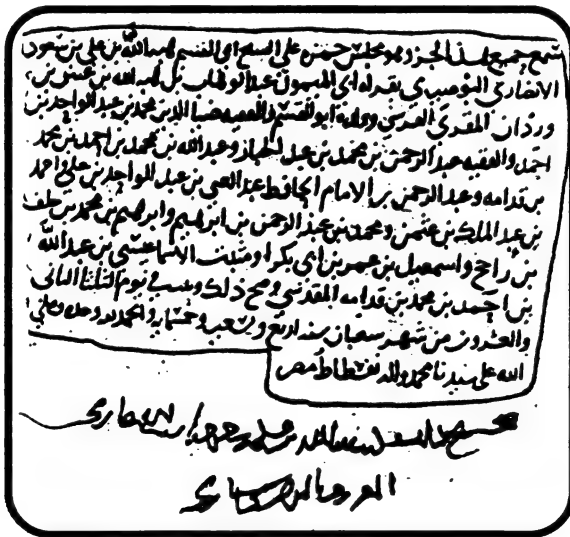 سمع جميع هذا الجزء وهو مجلس حمزة على الشيخ ابي القسم هبة الله بن علي بن سعود
الانصاري البوصيري بقراءة ابي الميمون عبد الوهاب بن عتيق بن
وردان المقرئ ابو القسم والفقيه ضيا الدين محمد بن عبد الواحد بن
احمد والفقيه عبد الرحمن بن محمد بن عبد الجبار وعبد الله بن محمد بن احمد بن محمد
بن قدامه وعبد الرحمن بن الامام الحافظ عبد الغني بن عبد الواحد بن علي واحمد
بن عبد الملك بن عثمن ومحمد بن عبد الرحمن بن ابرهيم وابرهيم بن محمد بن خلف
بن راجح واسمعيل بن عمر بن ابي بكر ومثبت الاسما عيسى بن عبد الله
بن احمد بن محمد بن قدامه المقدسي وصح ذلك وثبت في يوم الثلثا الثاني
والعشرون من شهر شعبان سنة اربع وتسعين وخمسمايه والحمد لله وحده وصلى
الله على سيدنا محمد واله بفسطاط مصر